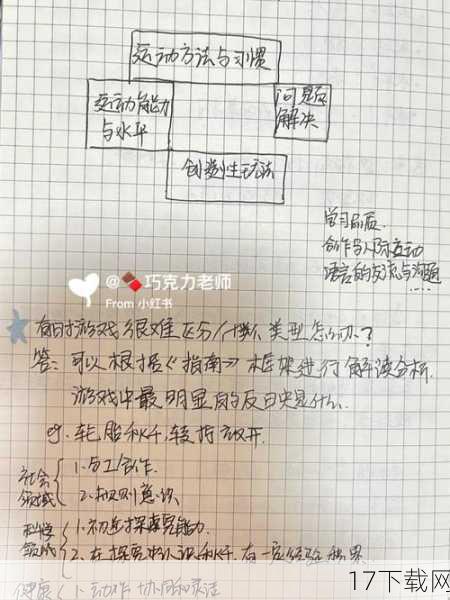 运动方法与习惯
运动能力
与水平
问题
解决
创造性玩法
学习品质
合作与人际互动
语言的交流与沟通
@🍫巧克力老师
From 小红书
有时游戏很难区分/判断类型怎么办？
答：可以根据《指南》框架进行解读分析.
游戏中最明显的反映是什么.
eg. 轮胎和 转持
社会
领域
1.分工合作.
2.规则意识
科学
领域
1.初步探究能力.
2.在探究中认识 有一定经验
健康 1.动作协调灵活
17下载网